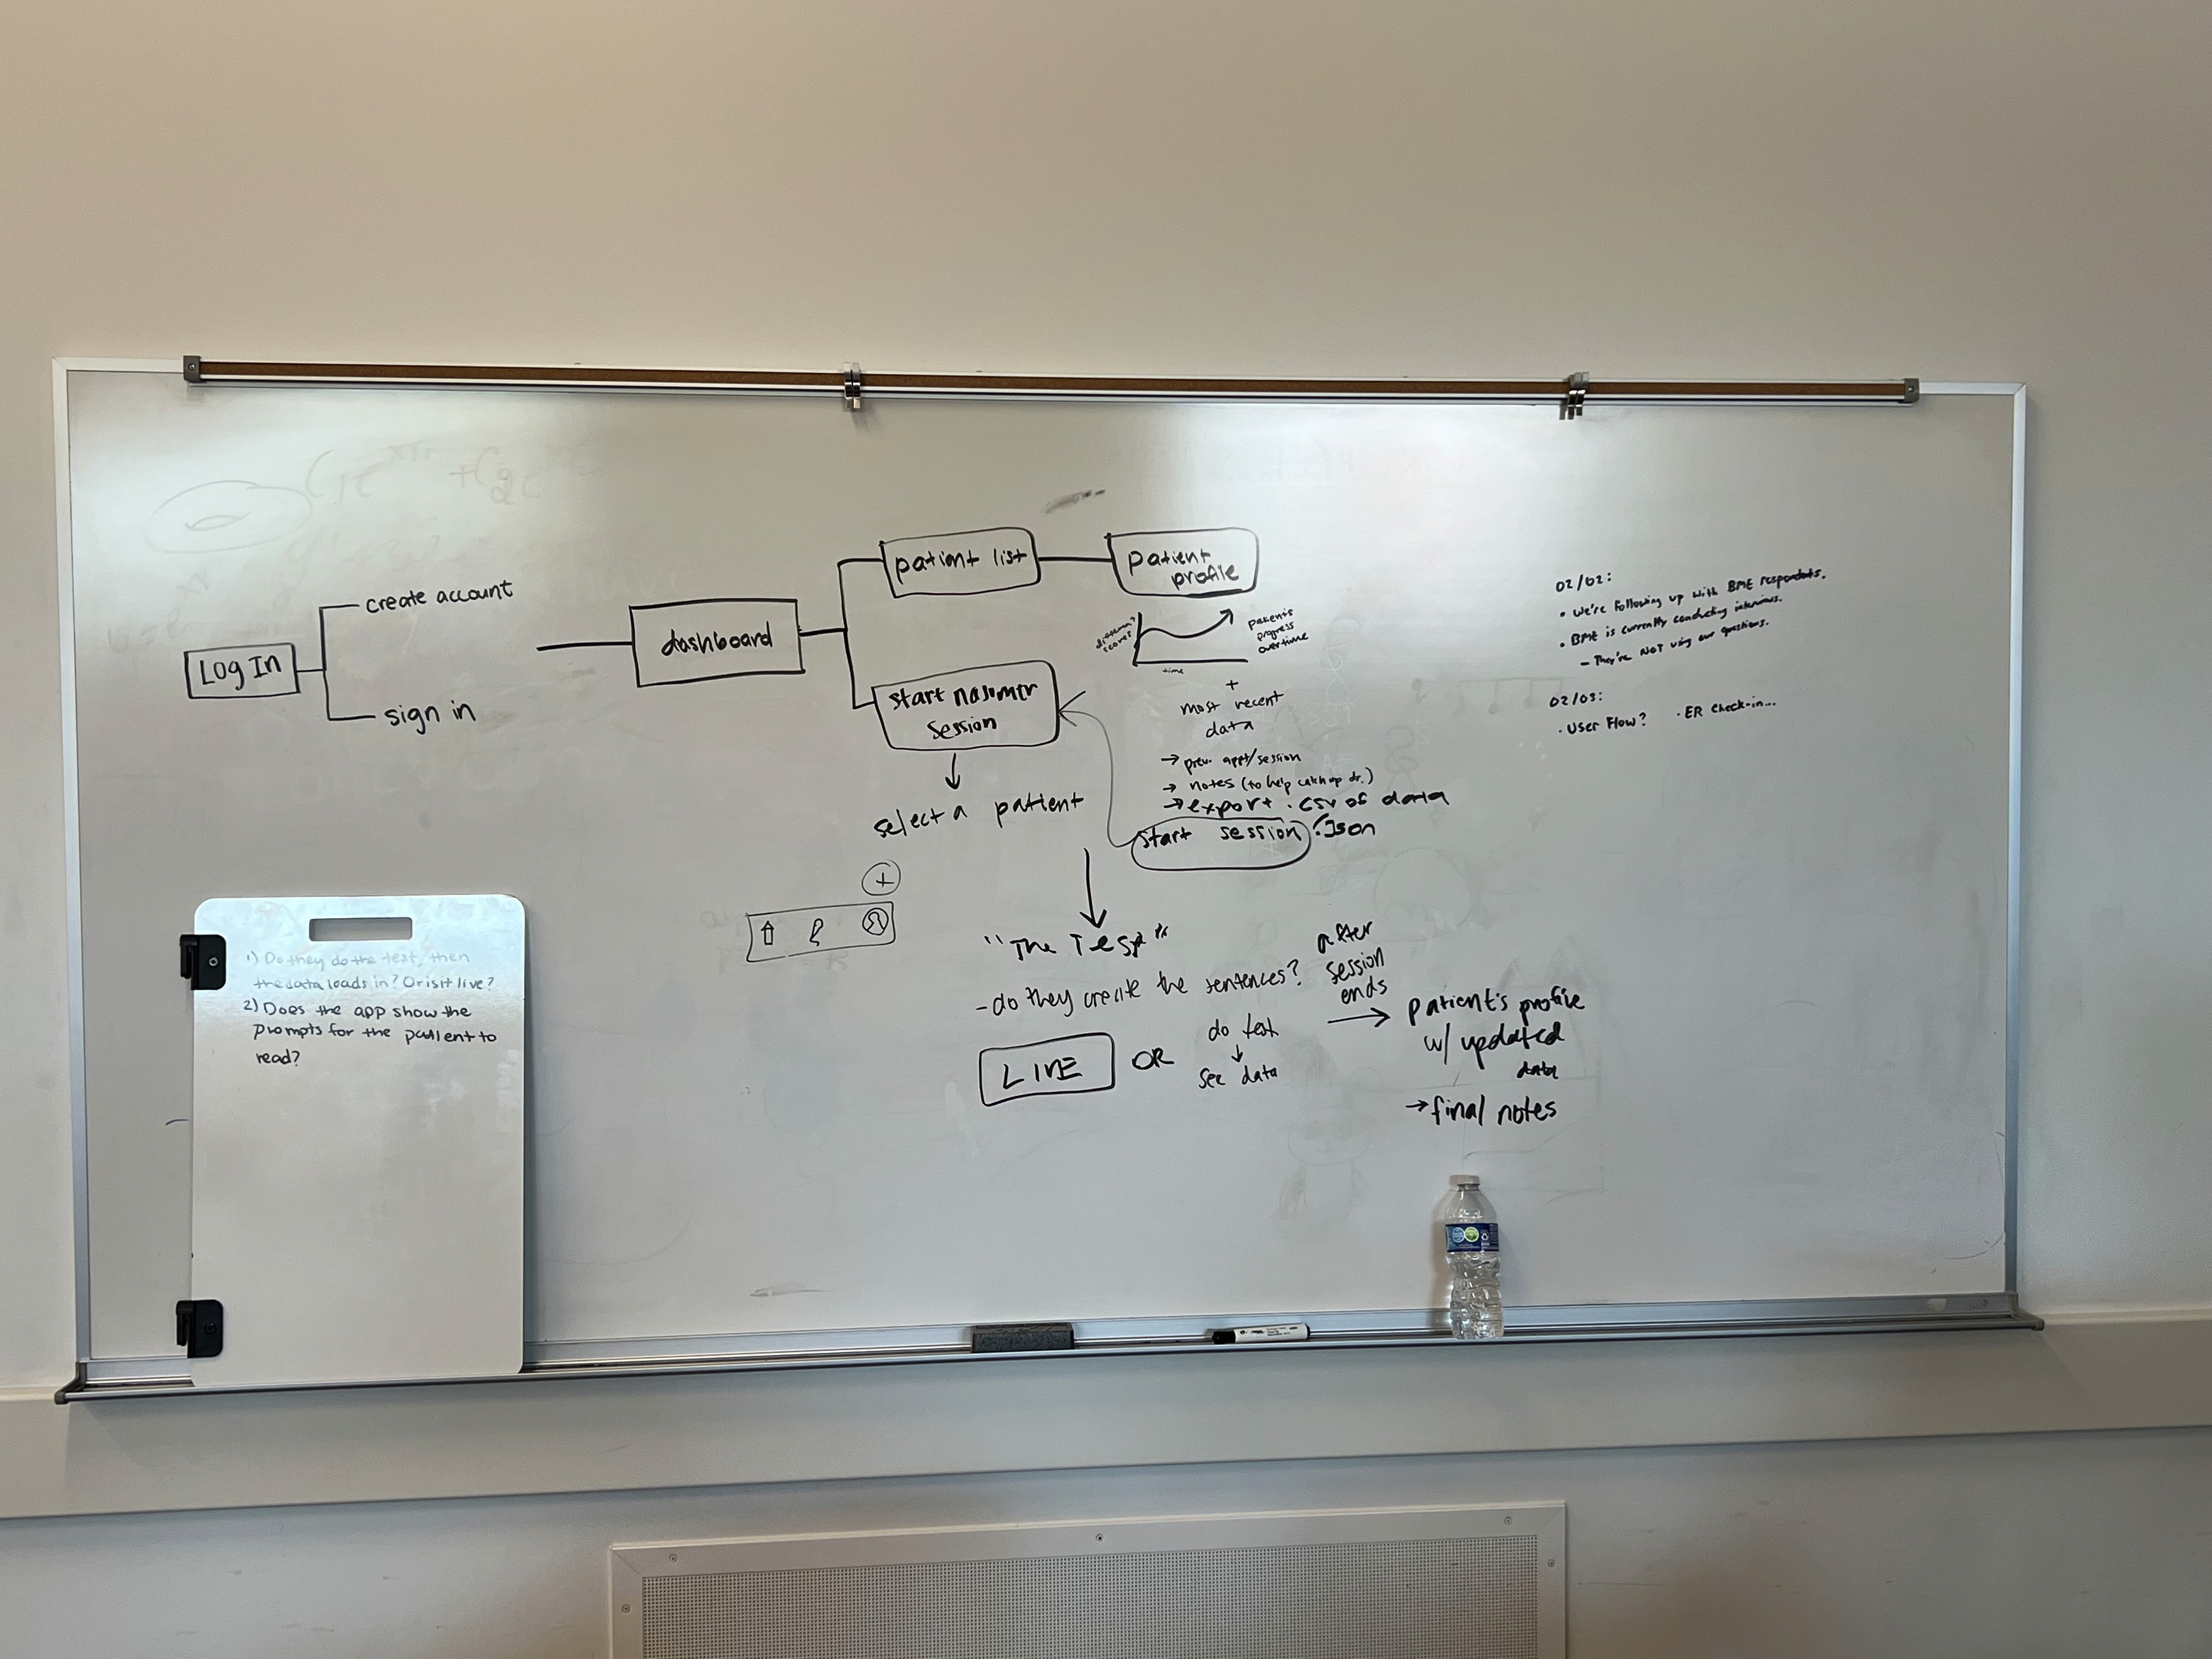 Log In
create account
sign in
dashboard
patient list
patient
profile
different?
scores
time
patient's
progress
overtime
+
most recent
data
→ prev. appt/session
→ notes (to help catch up dr.)
→ export .csv of data
.Json
start session
start
session
↓
select a patient
+
"The Test"
- do they create the sentences?
LIVE
OR
do test
↓
see data
after
session
ends
→
patient's profile
w/ updated
data
→ final notes
02/02:
• We're following up with BME respondents.
• BME is currently conducting interviews.
- They're NOT using our questions.
02/03:
• User Flow?
• ER Check-in...
1) Do they do the test, then
the data loads in? Or is it live?
2) Does the app show the
prompts for the patient to
read?